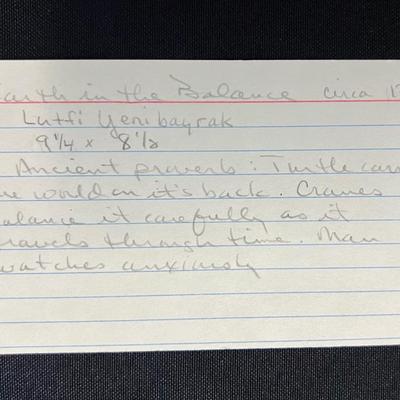 arth in the Balance circa 1
Lutfi Yenibayrak
9 1/4 x 8 1/2
Ancient proverb: Turtle carr
e world on it's back. Cranes
alance it carefully as it
ravels through time. Man
watches anxiously